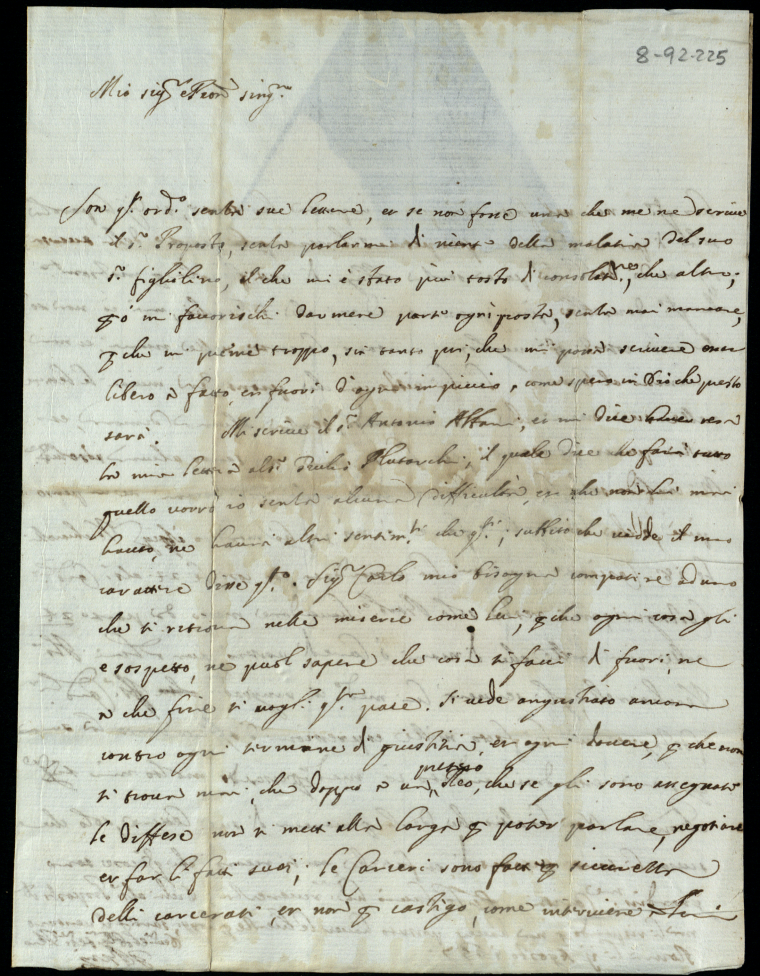 8-92-225
Mio sig.r e Pron sing.mo
Son q.o ord.o senza sue lettere, et se non fosse una che me ne scrive
il s.r Proposto, senza parlarmi di niente della malatia del suo
s.r figliolino, il che mi è stato più tosto di consolat.ne, che altro;
mi favorischi darmene parte ogni posta, senza mai mancare,
che mi preme troppo, sin tanto poi, che mi possa scrivere esser
libero à fatto, et fuori d'ogni impiccio, come spero in Dio che presto
sarà. Mi scrive il s.r Antonio et mi dice
la mia lettera al s.r Plutarchi, il quale dice che farà tutto
quello vorrò io senza alcuna difficoltà, et che non hà mai
hauto, ne haverà altri sentim.ti che q.ti; subbito che vidde il mio
carattere disse q.to. Sig.r Carlo mio bisogna compatire ad uno
che si ritrova nelle miserie come lui, che ogni cosa gli
è sospetto, ne puol sapere che cosa si facci di fuori, ne
a che fine si vogli q.ta pace. Si vede angustiato ancora
contro ogni termine di giustitia, et ogni dovere, che non
si trova mai, che doppo a un presso reo, che se gli sono assegnate
le diffese non si metti alla larga poter parlare, negotiare
et far li fatti suoi, le Carceri sono fatte sicurezza
delli carcerati, et non castigo, come interviene à